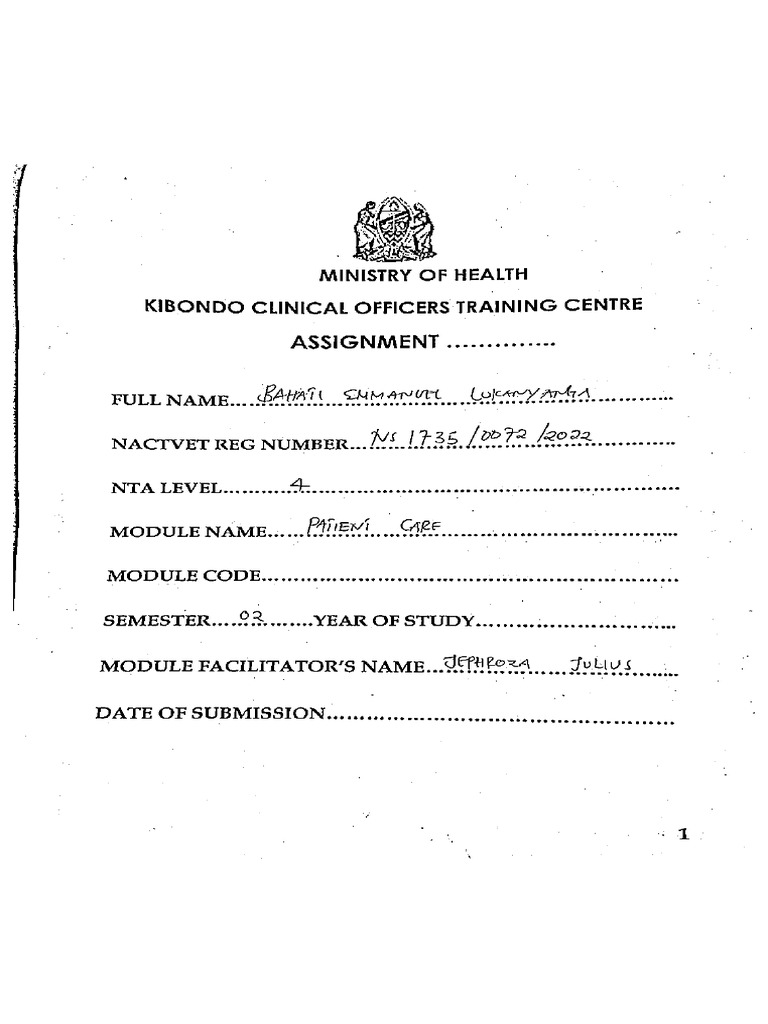 MINISTRY OF HEALTH
KIBONDO CLINICAL OFFICERS TRAINING CENTRE
ASSIGNMENT ..............
FULL NAME...BAHATI EMMANUEL LUKANYANGA...
NACTVET REG NUMBER...NS 1735/0072/2022...
NTA LEVEL...4...
MODULE NAME...PATIENT CARE...
MODULE CODE...
SEMESTER...02...YEAR OF STUDY...
MODULE FACILITATOR'S NAME...JEPHROZA JULIUS...
DATE OF SUBMISSION...
1